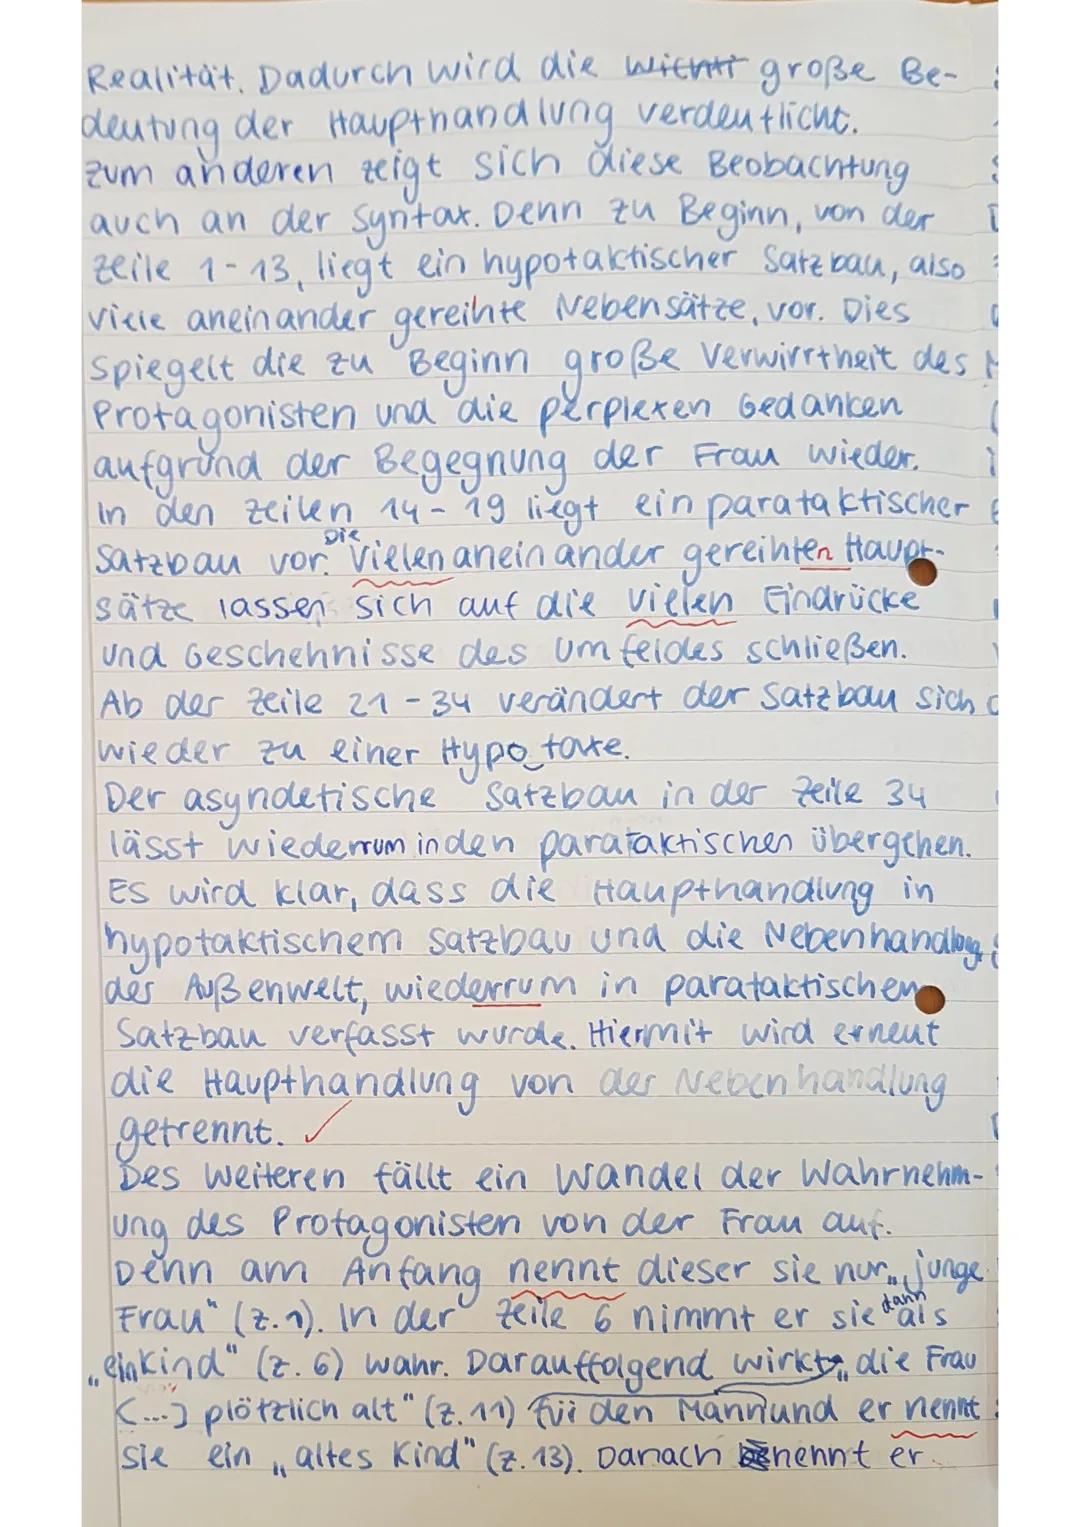 Realität. Dadurch wird die große Be-
deutung der Haupthandlung verdeutlicht.
Zum anderen zeigt sich diese Beobachtung
auch an der Syntax. Denn zu Beginn, von der
Zeile 1-13, liegt ein hypotaktischer Satzbau, also
viele aneinander gereihte Nebensätze, vor. Dies
spiegelt die zu Beginn große Verwirrtheit des
Protagonisten und die perplexen Gedanken
aufgrund der Begegnung der Frau wieder.
In den Zeilen 14-19 liegt ein parataktischer
Satzbau vor. Die vielen aneinander gereihten Haupt-
sätze lassen sich auf die vielen Eindrücke
und Geschehnisse des Umfeldes schließen.
Ab der Zeile 21-34 verändert der Satzbau sich
wieder zu einer Hypotaxe.
Der asyndetische Satzbau in der Zeile 34
lässt wiederrum in den parataktischen übergehen.
Es wird klar, dass die Haupthandlung in
hypotaktischem Satzbau und die Nebenhandlung,
der Außenwelt, wiederrum in parataktischen
Satzbau verfasst wurde. Hiermit wird erneut
die Haupthandlung von der Nebenhandlung
getrennt. ✓
Des Weiteren fällt ein Wandel der Wahrnehm-
ung des Protagonisten von der Frau auf.
Denn am Anfang nennt dieser sie nur „junge
Frau" (Z. 1). In der Zeile 6 nimmt er sie dann als
„ein Kind" (Z. 6) wahr. Darauffolgend wirkt „die Frau
[...] plötzlich alt" (Z. 11) für den Mann und er nennt
sie ein „altes Kind" (Z. 13). Danach nennt er